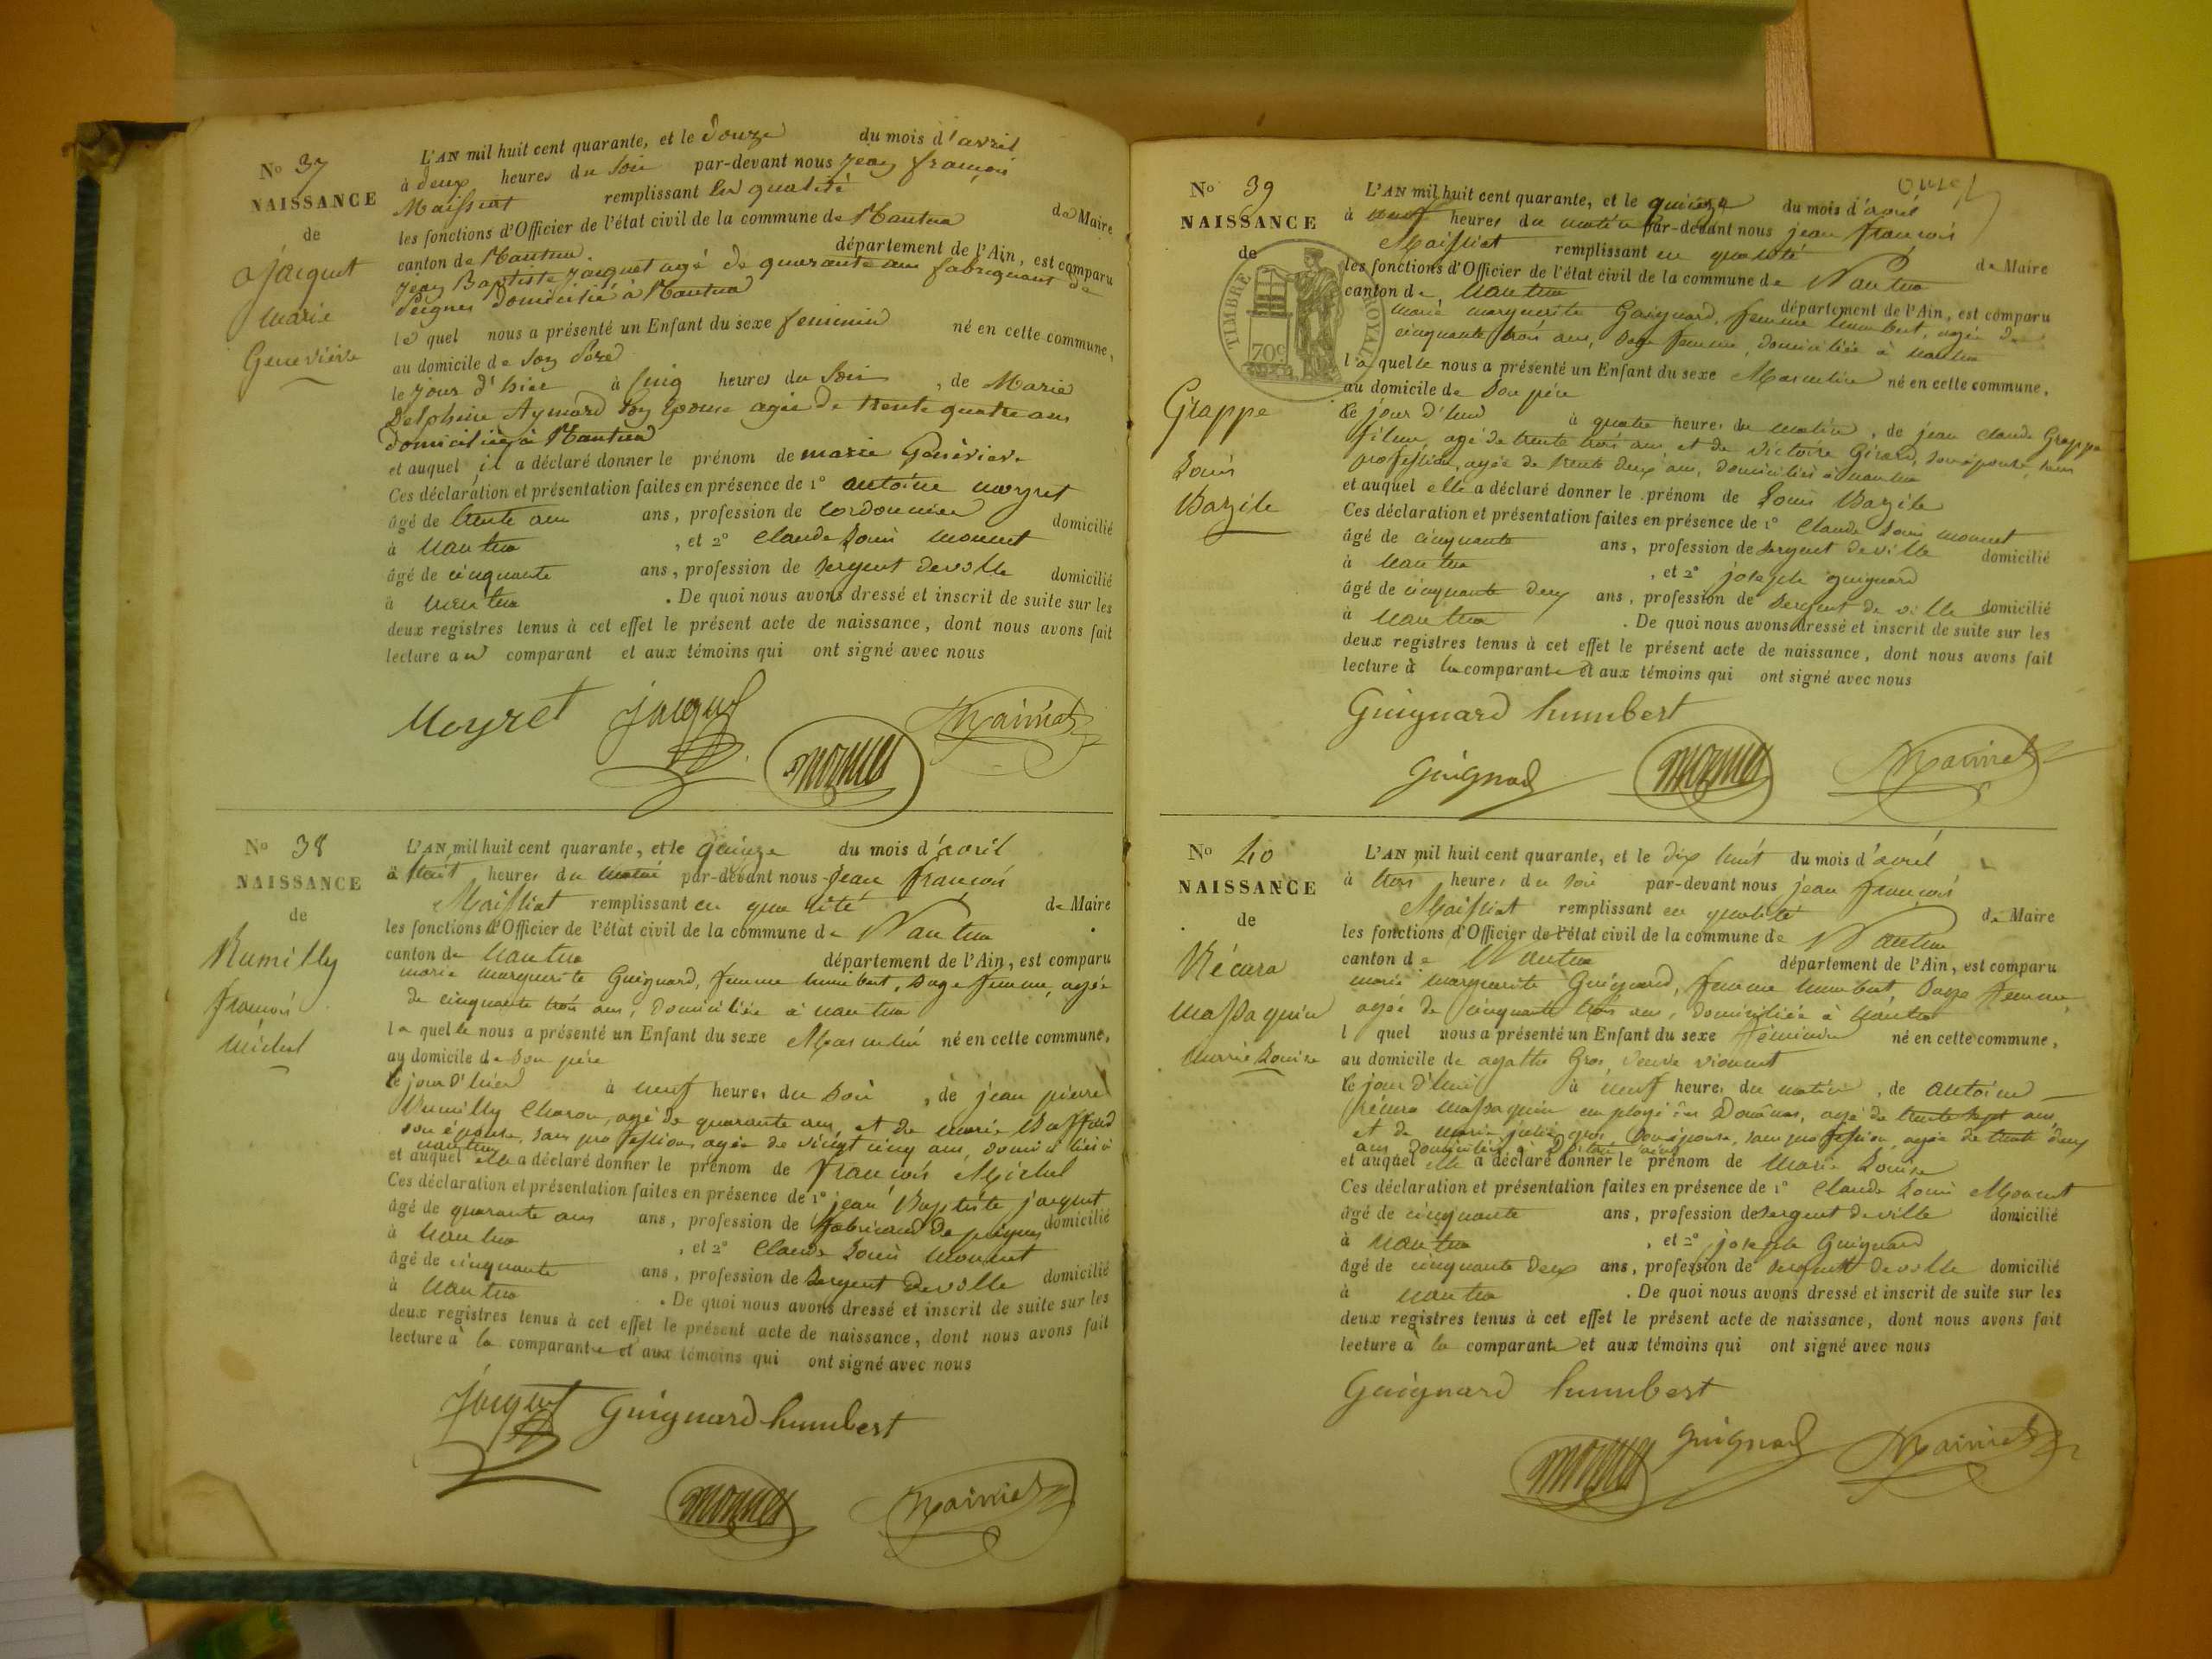 No 37
NAISSANCE
de
Jacquet
Marie
Geneviève
L'AN mil huit cent quarante, et le Douze du mois d'avril
à deux heures du soir par-devant nous jean françois
Maissiat remplissant en qualité de Maire
les fonctions d'Officier de l'état civil de la commune de Nantua
canton de Nantua département de l'Ain, est comparu
jean Baptiste Jacquet agé de quarante ans fabriquant de
Peignes domicilié à Nantua
le quel nous a présenté un Enfant du sexe feminin né en cette commune,
au domicile de son Père
le jour d'hier à cinq heures du soir, de Marie
Delphine Aymard son épouse agée de trente quatre ans
domiciliée à Nantua
et auquel il a déclaré donner le prénom de marie Genèviève
Ces déclaration et présentation faites en présence de 1° antoine moyret
âgé de trente ans ans, profession de cordonnier domicilié
à nantua, et 2° Claude Louis monnet
âgé de cinquante ans, profession de sergent de ville domicilié
à nantua. De quoi nous avons dressé et inscrit de suite sur les
deux registres tenus à cet effet le présent acte de naissance, dont nous avons fait
lecture au comparant et aux témoins qui ont signé avec nous
Moyret Jacquet
monnet Maissiat
No 38
NAISSANCE
de
Rumilly
françois
Michel
L'AN mil huit cent quarante, et le quinze du mois d'avril
à huit heures du matin par-devant nous jean françois
Maissiat remplissant en qualité de Maire
les fonctions d'Officier de l'état civil de la commune de Nantua
canton de nantua département de l'Ain, est comparu
marie marguerite Guignard, femme humbert, sage femme, agée
de cinquante trois ans, domiciliée à nantua
la quelle nous a présenté un Enfant du sexe Masculin né en cette commune,
au domicile de son père
le jour d'hier à neuf heures du soir, de jean pierre
Rumilly Charon, agé de quarante ans, et de marie Baffard
son épouse, sans profession agée de vingt cinq ans, domiciliés à
nantua
et auquel elle a déclaré donner le prénom de françois Michel
Ces déclaration et présentation faites en présence de 1° jean Baptiste jacquet
âgé de quarante ans ans, profession de fabricant de peignes domicilié
à nantua, et 2° Claude Louis monnet
âgé de cinquante ans, profession de sergent de ville domicilié
à nantua. De quoi nous avons dressé et inscrit de suite sur les
deux registres tenus à cet effet le présent acte de naissance, dont nous avons fait
lecture à la comparante et aux témoins qui ont signé avec nous
Jacquet Guignard humbert
monnet Maissiat
No 39
NAISSANCE
de
TIMBRE ROYAL
70c
Grappe
Louis
Bazile
L'AN mil huit cent quarante, et le quinze du mois d'avril
à neuf heures du matin par-devant nous jean françois
Maissiat remplissant en qualité de Maire
les fonctions d'Officier de l'état civil de la commune de Nantua
canton de nantua département de l'Ain, est comparu
marie marguerite Guignard, femme humbert, agée de
cinquante trois ans, sage femme, domiciliée à nantua
la quelle nous a présenté un Enfant du sexe Masculin né en cette commune,
au domicile de son père
le jour d'hui à quatre heures du matin, de jean claude Grappe
fileur, agé de trente trois ans, et de victoire Girard, son épouse, sans
profession, agée de trente deux ans, domiciliés à nantua
et auquel elle a déclaré donner le prénom de Louis Bazile
Ces déclaration et présentation faites en présence de 1° Claude Louis monnet
âgé de cinquante ans, profession de sergent de ville domicilié
à nantua, et 2° joseph guignard
âgé de cinquante deux ans, profession de sergent de ville domicilié
à nantua. De quoi nous avons dressé et inscrit de suite sur les
deux registres tenus à cet effet le présent acte de naissance, dont nous avons fait
lecture à la comparante et aux témoins qui ont signé avec nous
Guignard humbert
Guignard monnet Maissiat
No 40
NAISSANCE
de
Récura
Massaquin
Marie Louise
L'AN mil huit cent quarante, et le dix huit du mois d'avril
à trois heures du soir par-devant nous jean françois
Maissiat remplissant en qualité de Maire
les fonctions d'Officier de l'état civil de la commune de Nantua
canton de Nantua département de l'Ain, est comparu
marie marguerite Guignard, femme humbert, sage femme,
agée de cinquante trois ans, domiciliée à nantua
l quel nous a présenté un Enfant du sexe féminin né en cette commune,
au domicile de agathe Gros, veuve vionnet
le jour d'hui à neuf heures du matin, de antoine
récura massaquin employé des Douânes, agé de trente sept ans,
et de marie julie gros, son épouse, sans profession, agée de trente deux
ans domiciliés à
et auquel elle a déclaré donner le prénom de Marie Louise
Ces déclaration et présentation faites en présence de 1° Claude Louis Monnet
âgé de cinquante ans, profession de sergent de ville domicilié
à nantua, et 2° joseph Guignard
âgé de cinquante deux ans, profession de sergent de ville domicilié
à nantua. De quoi nous avons dressé et inscrit de suite sur les
deux registres tenus à cet effet le présent acte de naissance, dont nous avons fait
lecture à la comparante et aux témoins qui ont signé avec nous
Guignard humbert
monnet Guignard Maissiat